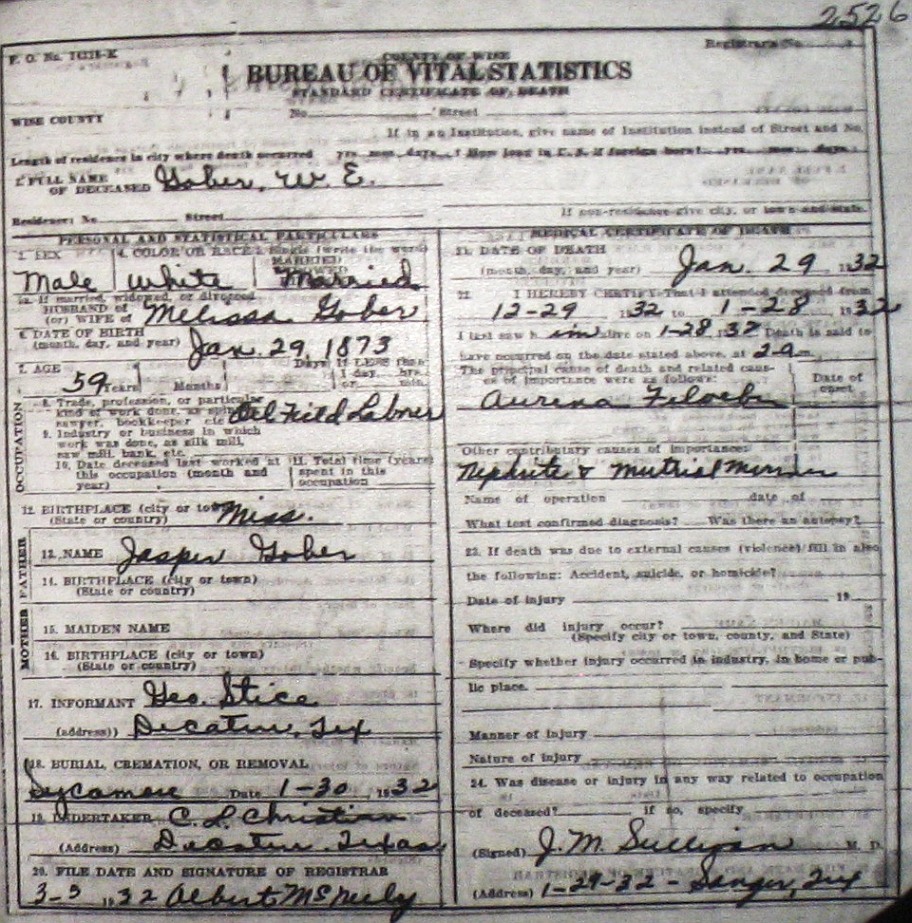 2526
F. O. No. 14218-K
COUNTY OF WISE
Registrar's No.
BUREAU OF VITAL STATISTICS
STANDARD CERTIFICATE OF DEATH
WISE COUNTY
No. Street
If in an Institution, give name of Institution instead of Street and No.
Length of residence in city where death occurred yrs. mos. days. How long in U. S. if foreign born? yrs. mos. days
1. FULL NAME OF DECEASED Gober, W. E.
Residence: No. Street
If non-residence give city, or town and state
PERSONAL AND STATISTICAL PARTICULARS
3. SEX Male
4. COLOR OR RACE White
Single (write the word)
MARRIED
Married
5a. If married, widowed, or divorced
HUSBAND of
(or) WIFE of Melissa Gober
6. DATE OF BIRTH
(month, day, and year) Jan. 29, 1873
7. AGE 59 Years Months Days If LESS than
1 day, hrs.
or min.
OCCUPATION
8. Trade, profession, or particular
kind of work done, as
sawyer, bookkeeper etc. Oil Field Labner
9. Industry or business in which
work was done, as silk mill,
saw mill, bank, etc.
10. Date deceased last worked at
this occupation (month and
year)
11. Total time (years)
spent in this
occupation
12. BIRTHPLACE (city or town) Miss.
(State or country)
FATHER
13. NAME Jasper Gober
14. BIRTHPLACE (city or town)
(State or country)
MOTHER
15. MAIDEN NAME
16. BIRTHPLACE (city or town)
(State or country)
17. INFORMANT Geo. Stice
(address) Decatur, Tex
18. BURIAL, CREMATION, OR REMOVAL
Sycamore Date 1-30 1932
19. UNDERTAKER C. L. Christian
(Address) Decatur, Texas
20. FILE DATE AND SIGNATURE OF REGISTRAR
3-5 1932 Albert McNeely
MEDICAL CERTIFICATE OF DEATH
21. DATE OF DEATH
(month, day, and year) Jan. 29 1932
22. I HEREBY CERTIFY That I attended deceased from
12-29 1932 to 1-28 1932
I last saw him alive on 1-28 1932 Death is said to
have occurred on the date stated above, at 2 a m.
The principal cause of death and related caus-
es of importance were as follows:
Date of
onset
Other contributary causes of importance:
Name of operation date of
What test confirmed diagnosis? Was there an autopsy?
23. If death was due to external causes (violence) fill in also
the following: Accident, suicide, or homicide?
Date of injury 19
Where did injury occur?
(Specify city or town, county, and State)
Specify whether injury occurred in industry, in home or pub-
lic place.
Manner of injury
Nature of injury
24. Was disease or injury in any way related to occupation
of deceased? if so, specify
(Signed) J. M. Sullivan M. D.
(Address) 1-29-32 - Sanger, Tex